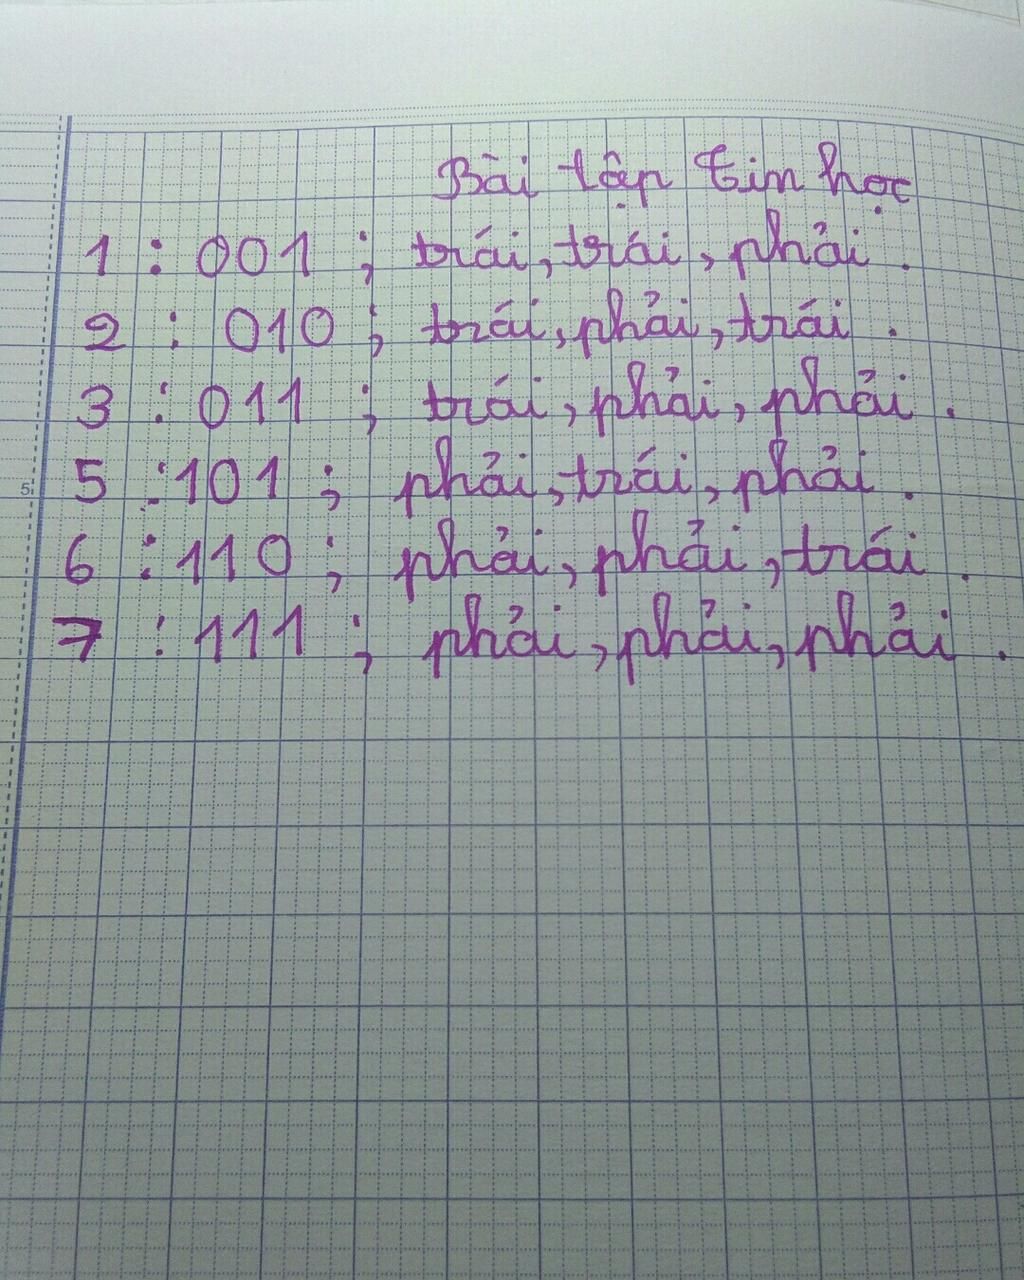 Bài tập tin học
1 : 001 ; trái, trái, phải.
2 : 010 ; trái, phải, trái.
3 : 011 ; trái, phải, phải.
5 : 101 ; phải, trái, phải.
5
6 : 110 ; phải, phải, trái.
7 : 111 ; phải, phải, phải.